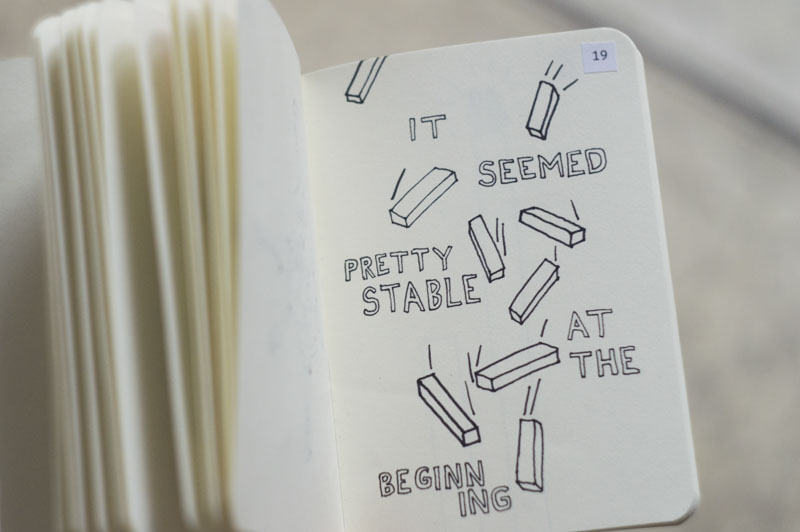 19
IT
SEEMED
PRETTY
STABLE
AT
THE
BEGINN
ING